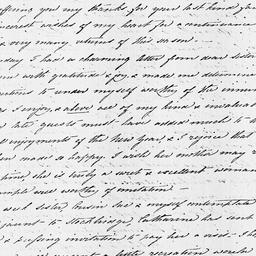 offering you my thanks for your last kind
sincerest wishes of my heart for a continuance
& very many returns of this season —
day I had a charming letter from dear sister
me with gratitude & joy, & made me determine
to render myself worthy of the
I enjoy, & above all of my kind & invaluable
late guests must have added much to
enjoyments of the New year, & I rejoice that
been made so happy. I wish her mother may
she is truly a sweet & excellent woman
ample & well worthy of imitation —
sister Susan & myself contemplate
jaunt to Stockbridge, Catharine has sent
& pressing invitation to pay her a visit - I
a little variation would